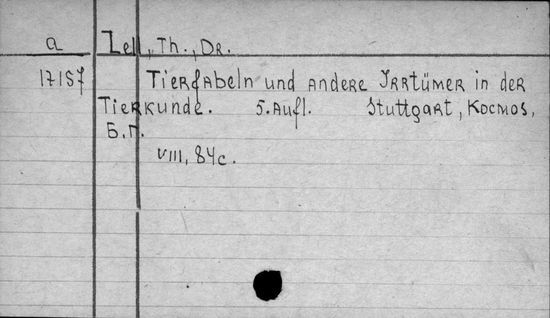 a Zell, Th., Dr.
17157 Tierfabeln und andere Irrtümer in der
Tierkunde. 5. Aufl. Stuttgart, Kocmos,
Б.Г.
VIII, 84 c.